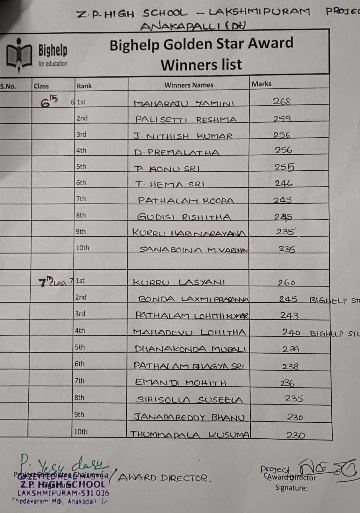 Z.P. HIGH SCHOOL - LAKSHMIPURAM PROJE
ANAKAPALLI (Dt)
Bighelp
for education
Bighelp Golden Star Award
Winners list
S.No. Class Rank Winners Names Marks
6th 6 1st MAHARAJU YAMINI 268
2nd PALISETTI RESHMA 259
3rd J. NITHISH KUMAR 256
4th D. PREMALATHA 256
5th T. HONU SRI 255
6th T. HEMA SRI 246
7th PATHALAM ROOPA 245
8th GUDISI RISHITHA 245
9th KURRU HARINARAYANA 235
10th SANABOINA M. 235
7th class 7 1st KURRU LASYANI 260
2nd BONDA LAXMI PRASANNA 245 BIGHELP ST
3rd PATHALAM LOHITH KUMAR 243
4th MAHADEVU LOHITHA 240 BIGHELP
5th DHANAKONDA MURALI 239
6th PATHALAM BHAGYA SRI 238
7th EMANDI MOHITH 236
8th SIRISOLLA SUSEELA 235
9th JANAPAREDDY BHANU 230
10th THUMMAPALA KUSUMA 230
/ AWARD DIRECTOR.
Z.P. HIGH SCHOOL
LAKSHMIPURAM-531 036
Project
(Award Director
Signature: